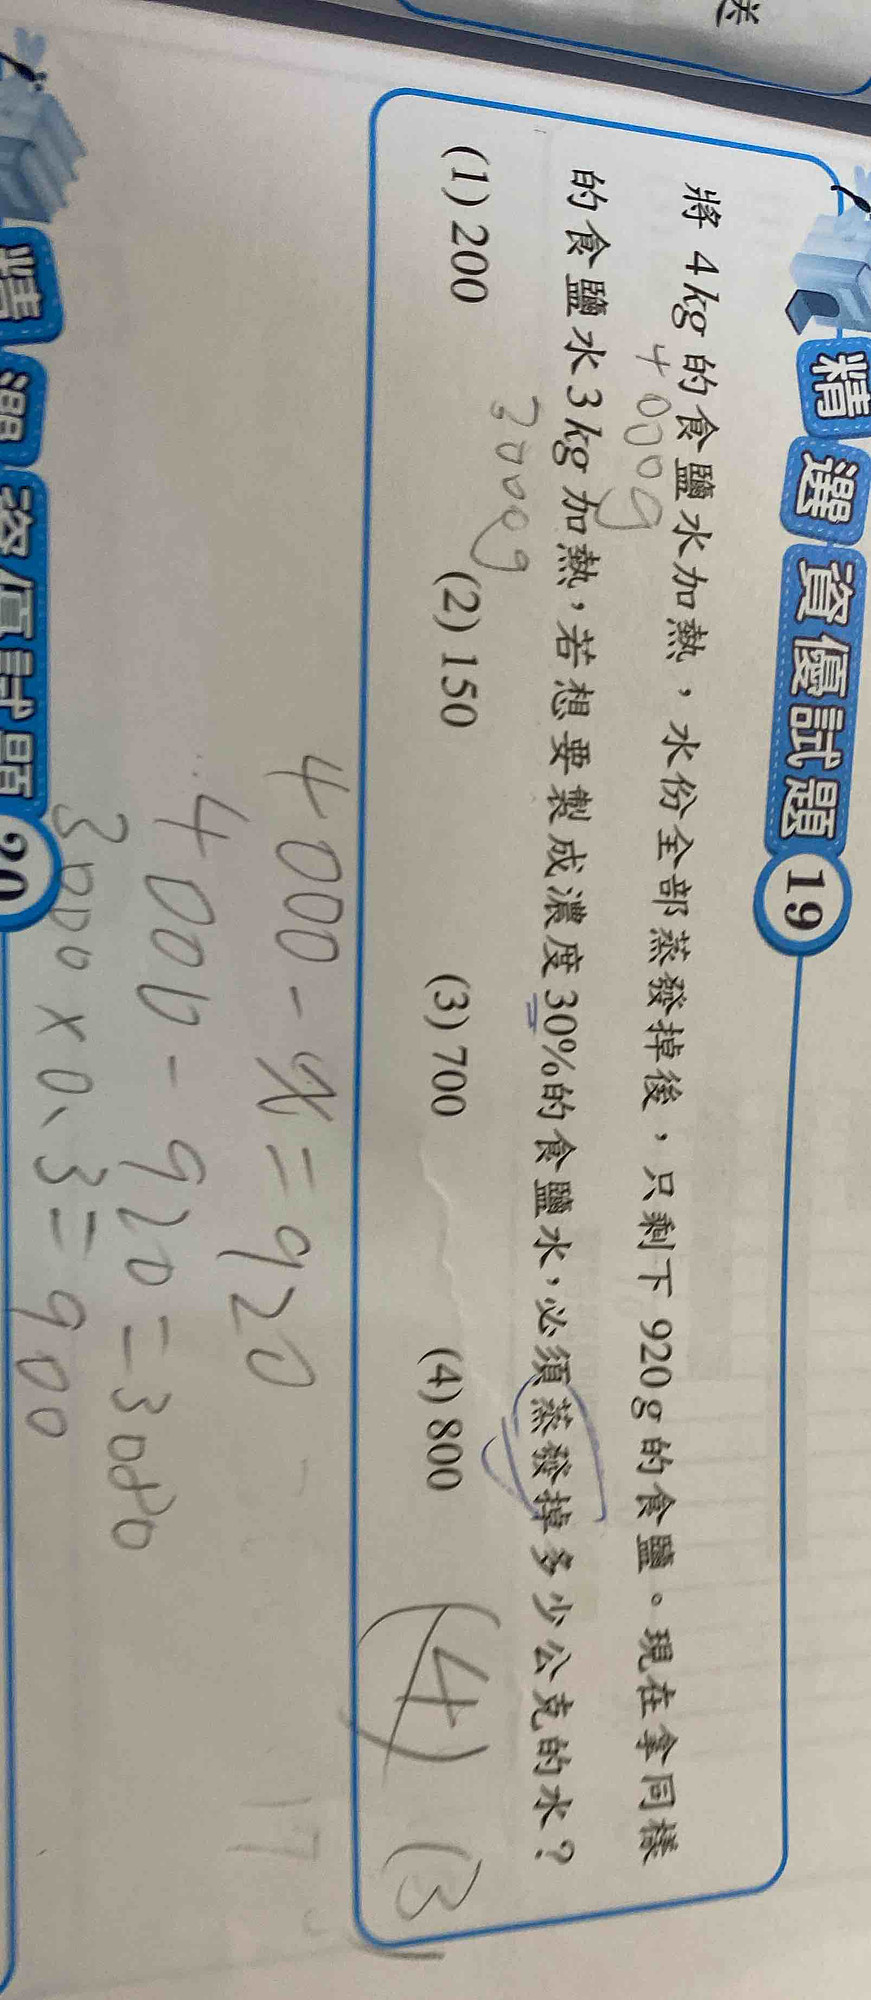 送
精選資優試題 19
將4kg的食鹽水加熱，水份全部蒸發掉後，只剩下920g的食鹽。現在拿同樣
4000g
的食鹽水3kg加熱，若想要製成濃度30%的食鹽水，必須蒸發掉多少公克的水？
3000g
(1) 200 (2) 150 (3) 700 (4) 800 (4) (3)
4000-x=920
17
4000-920=3080
3000×0.3=900
精選資優試題 20